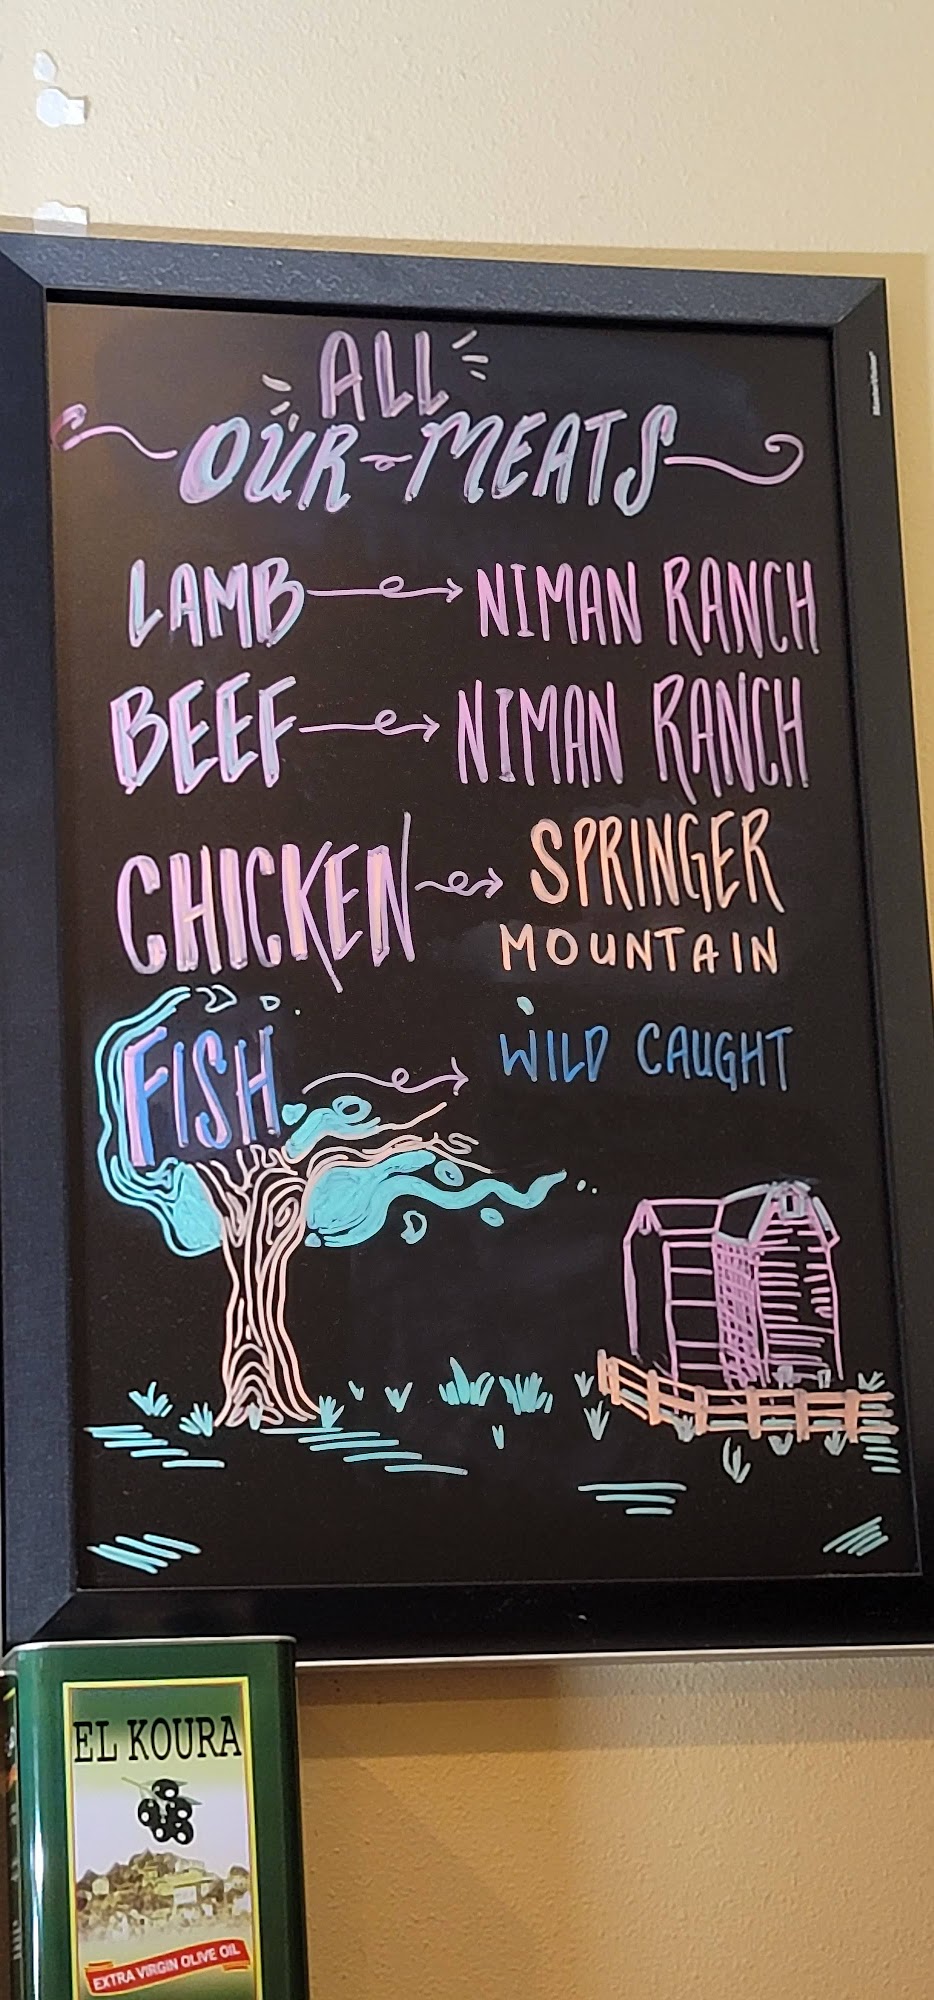 ALL
OUR MEATS
LAMB → NIMAN RANCH
BEEF → NIMAN RANCH
CHICKEN → SPRINGER
MOUNTAIN
FISH → WILD CAUGHT
EL KOURA
EXTRA VIRGIN OLIVE OIL